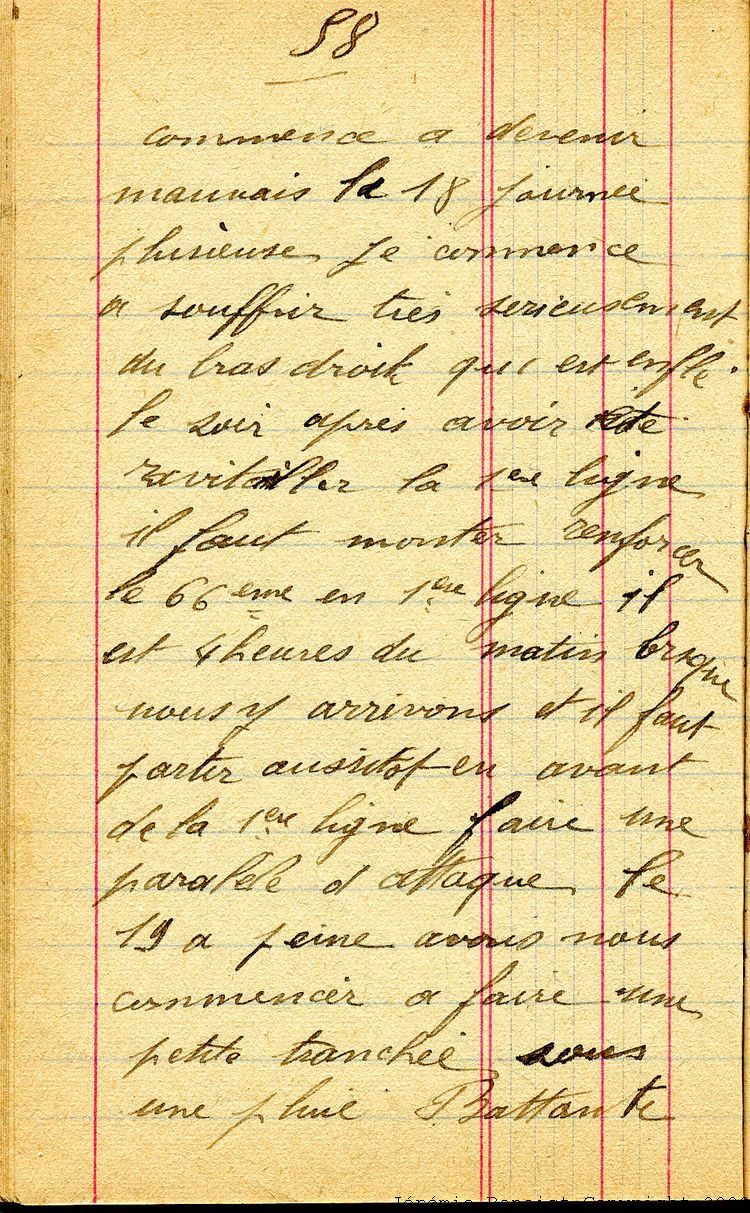 58
commence a devenir
mauvais le 18 journée
plusieuse je commence
a souffrir tres serieusement
du bras droit qui est enflé.
le soir apres avoir eté
ravitailler la 1ere ligne
il faut monter renforcer
le 66eme en 1ere ligne il
est 4 heures du matin lorsque
nous y arrivons et il faut
partir aussitot en avant
de la 1ere ligne faire une
paralele d attaque le
19 a peine avons nous
commencer a faire une
petite tranchée sous
une pluie Battante